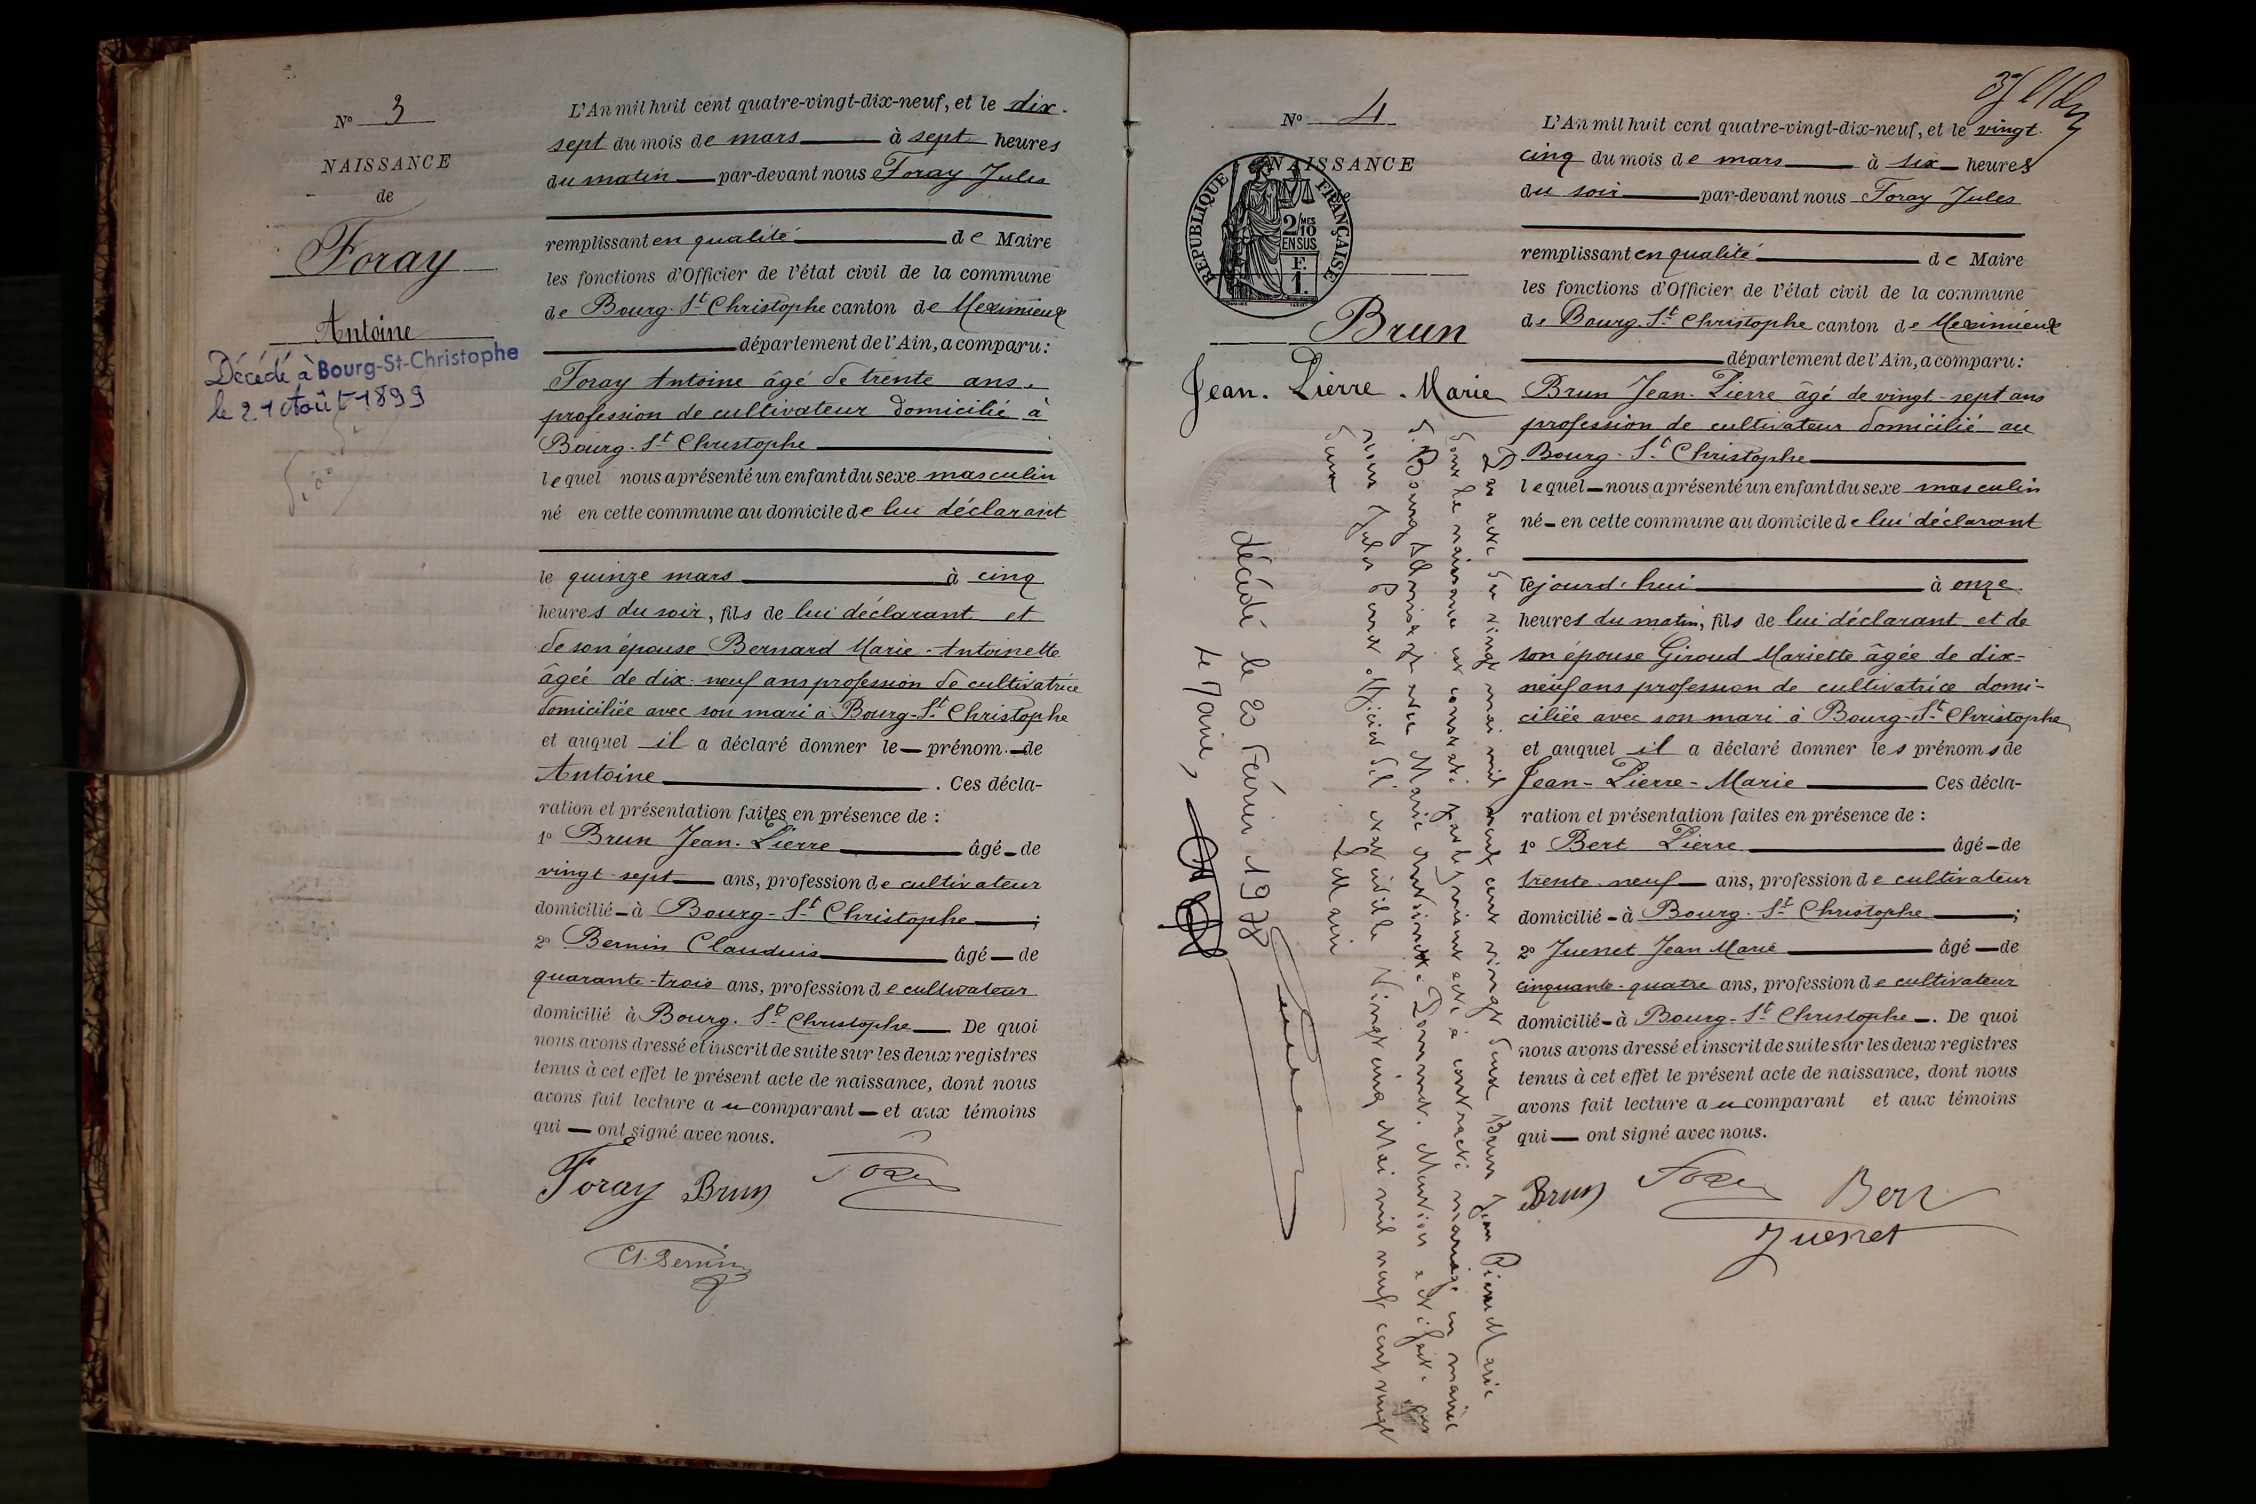 N° 3
NAISSANCE
de
Foray
Antoine
Décédé à Bourg-St-Christophe
le 21 Août 1899
L'An mil huit cent quatre-vingt-dix-neuf, et le dix-
sept du mois de mars à sept heures
du matin par-devant nous Foray Jules
remplissant en qualité de Maire
les fonctions d'Officier de l'état civil de la commune
de Bourg-St Christophe canton de Meximieux
département de l'Ain, a comparu:
Foray Antoine âgé de trente ans,
profession de cultivateur domicilié à
Bourg-St Christophe
lequel nous a présenté un enfant du sexe masculin
né en cette commune au domicile de lui déclarant
le quinze mars à cinq
heures du soir, fils de lui déclarant et
de son épouse Bernard Marie-Antoinette
âgée de dix-neuf ans profession de cultivatrice
domiciliée avec son mari à Bourg-St Christophe
et auquel il a déclaré donner le prénom de
Antoine. Ces décla-
ration et présentation faites en présence de :
1° Brun Jean-Pierre âgé de
vingt-sept ans, profession de cultivateur
domicilié à Bourg-St Christophe;
2° Bernin Claudius âgé de
quarante-trois ans, profession de cultivateur
domicilié à Bourg-St Christophe De quoi
nous avons dressé et inscrit de suite sur les deux registres
tenus à cet effet le présent acte de naissance, dont nous
avons fait lecture au comparant et aux témoins
qui ont signé avec nous.
Foray Brun Foray
Cl. Bernin
N° 4
NAISSANCE
RÉPUBLIQUE FRANÇAISE
2/10 MES
EN SUS
F.
1.
Brun
Jean-Pierre-Marie
Par acte du vingt mai mil neuf cent vingt deux Brun Jean Pierre Marie
dont la naissance est constatée par le présent acte a contracté mariage en mairie
de Bourg St Christophe avec Marie Antoinette Dommet. Mention est faite par
nous Jules Foray officier de l'état civil le Vingt cinq Mai mil neuf cent vingt
deux
Le Maire
décédé le 20 Février 1978
Le Maire,
L'An mil huit cent quatre-vingt-dix-neuf, et le vingt-
cinq du mois de mars à six heures
du soir par-devant nous Foray Jules
remplissant en qualité de Maire
les fonctions d'Officier de l'état civil de la commune
de Bourg-St Christophe canton de Meximieux
département de l'Ain, a comparu:
Brun Jean-Pierre âgé de vingt-sept ans
profession de cultivateur domicilié au
Bourg-St Christophe
lequel nous a présenté un enfant du sexe masculin
né en cette commune au domicile de lui déclarant
lejourd'hui à onze
heures du matin, fils de lui déclarant et de
son épouse Giroud Mariette âgée de dix-
neuf ans profession de cultivatrice domi-
ciliée avec son mari à Bourg-St Christophe
et auquel il a déclaré donner les prénoms de
Jean-Pierre-Marie Ces décla-
ration et présentation faites en présence de :
1° Bert Pierre âgé de
trente-neuf ans, profession de cultivateur
domicilié à Bourg-St Christophe;
2° Juenet Jean Marie âgé de
cinquante-quatre ans, profession de cultivateur
domicilié à Bourg-St Christophe. De quoi
nous avons dressé et inscrit de suite sur les deux registres
tenus à cet effet le présent acte de naissance, dont nous
avons fait lecture au comparant et aux témoins
qui ont signé avec nous.
Brun Foray Bert
Juenet